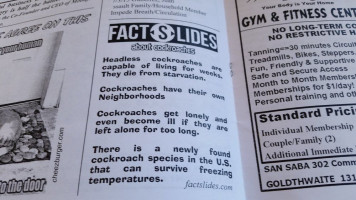 nsuult Family/Household Member
Impede Breath/Circulation)
FACT SLIDES
about cockroaches
Headless cockroaches are
capable of living for weeks.
They die from starvation.
Cockroaches have their own
Neighborhoods
Cockroaches get lonely and
even become ill if they are
left alone for too long.
There is a newly found
cockroach species in the U.S.
that can survive freezing
temperatures.
factslides.com
your hound
cheezburger.com
to the door
Your Body is Your Home
GYM & FITNESS CEN
NO LONG-TERM CO
NO RESTRICTIVE H
Tanning=30 minutes Circui
Treadmills, Bikes, Steppers,
Fun, Friendly & Supportive
Safe and Secure Access
Month to Month Membership
Memberships for $1/day!
Personal training and othe
Standard Pricin
Individual Membership
Couple/Family (2)
Additional Immediate
SAN SABA 302 Comme
GOLDTHWAITE 131